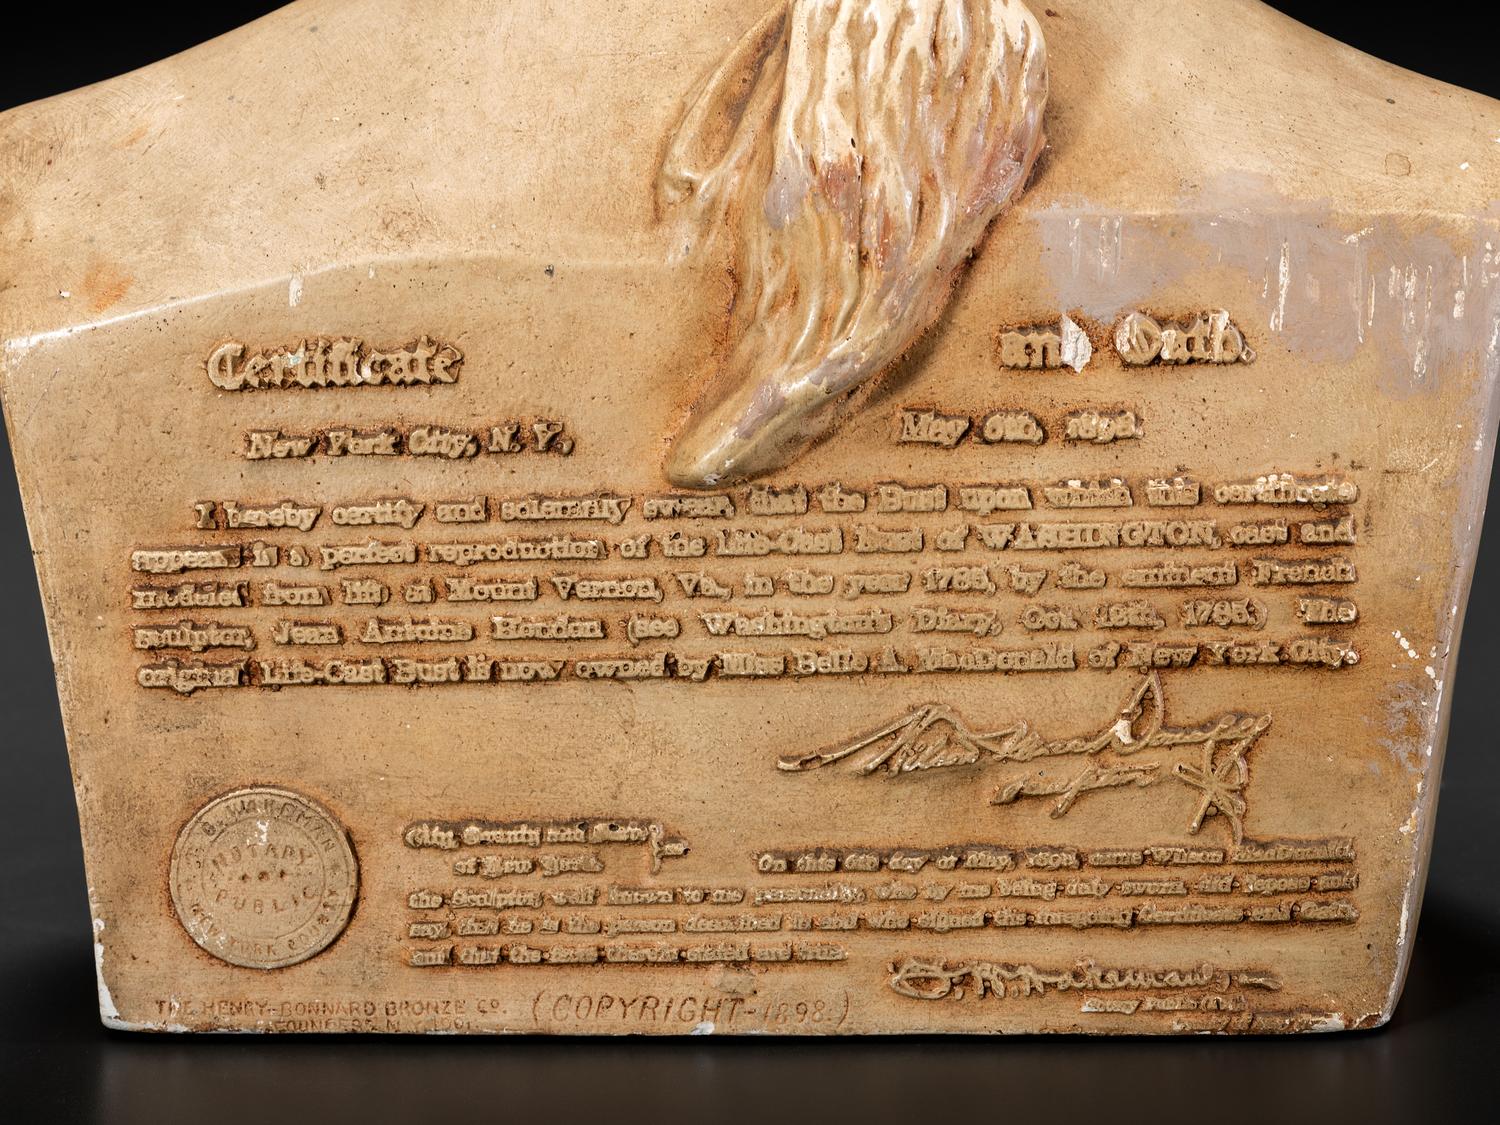 Certificate and Oath.
New York City, N. Y., May 6th, 1898.
I hereby certify and solemnly swear, that the Bust upon which this certificate
appears is a perfect reproduction of the Life-Cast Bust of WASHINGTON, cast and
modeled from life at Mount Vernon, Va., in the year 1785, by the eminent French
sculptor, Jean Antoine Houdon (see Washington's Diary, Oct. 1785.) The
original Life-Cast Bust is now owned by Miss Belle A. MacDonald of New York City.
Wilson MacDonald
Sculptor
City, County and State
of New York.
On this 6th day of May, 1898, came Wilson MacDonald,
the Sculptor, well known to me personally, who by me being duly sworn, did depose and
say, that he is the person described in and who signed the foregoing Certificate and Oath,
and that the facts therein stated are true.
WAKEMAN
NOTARY
PUBLIC
NEW YORK COUNTY
Wakeman
Notary Public
THE HENRY-BONNARD BRONZE CO. (COPYRIGHT-1898.)
FOUNDERS. N.Y.